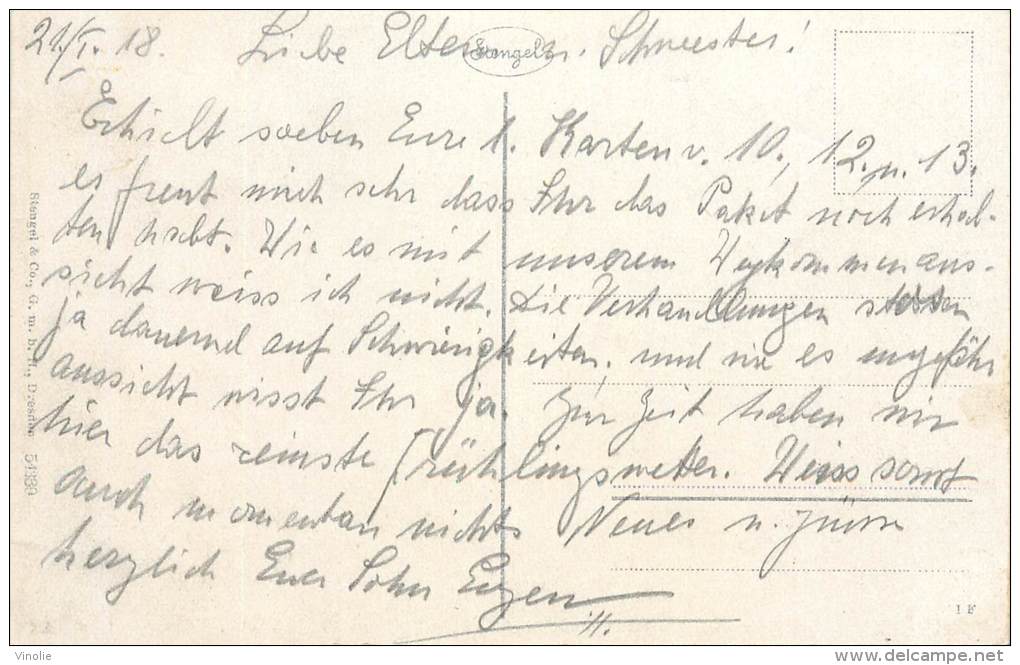 21./I. 18. Liebe Eltern u. Schwester!
Stengel
Erhielt soeben Eure 1. Karten v. 10., 12. u. 13.
es freut mich sehr dass Ihr das Paket noch erhal-
ten habt. Wie es mit unserem Wegkommen aus-
sieht weiss ich nicht. Die Verhandlungen stossen
ja dauernd auf Schwierigkeiten, und wie es ungefähr
aussieht wisst Ihr ja. Zur Zeit haben wir
hier das reinste Frühlingswetter. Weiss sonst
auch momentan nichts Neues u. grüsse
herzlich Euer Sohn Eugen
Stengel & Co., G. m. b. H., Dresden 54380
1 F
Vinolie
www.delcampe.net